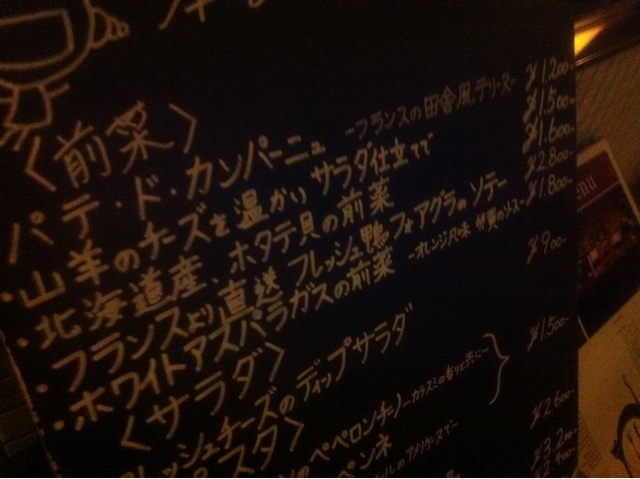 〈前菜〉
パテ・ド・カンパーニュ -フランスの田舎風テリーヌ- ¥1,200-
・山羊のチーズを温かいサラダ仕立てで ¥1,500-
・北海道産、ホタテ貝の前菜 ¥1,600-
・フランスより直送 フレッシュ鴨フォアグラのソテー ¥2,800-
・ホワイトアスパラガスの前菜 -オレンジ風味 卵黄のソース- ¥1,800-
〈サラダ〉
フレッシュチーズのディップサラダ ¥900-
パスタ〉
のペペロンチーノ -カラスミの香りと共に- ¥1,500-
ペンネ
¥2,600-
¥3,200-